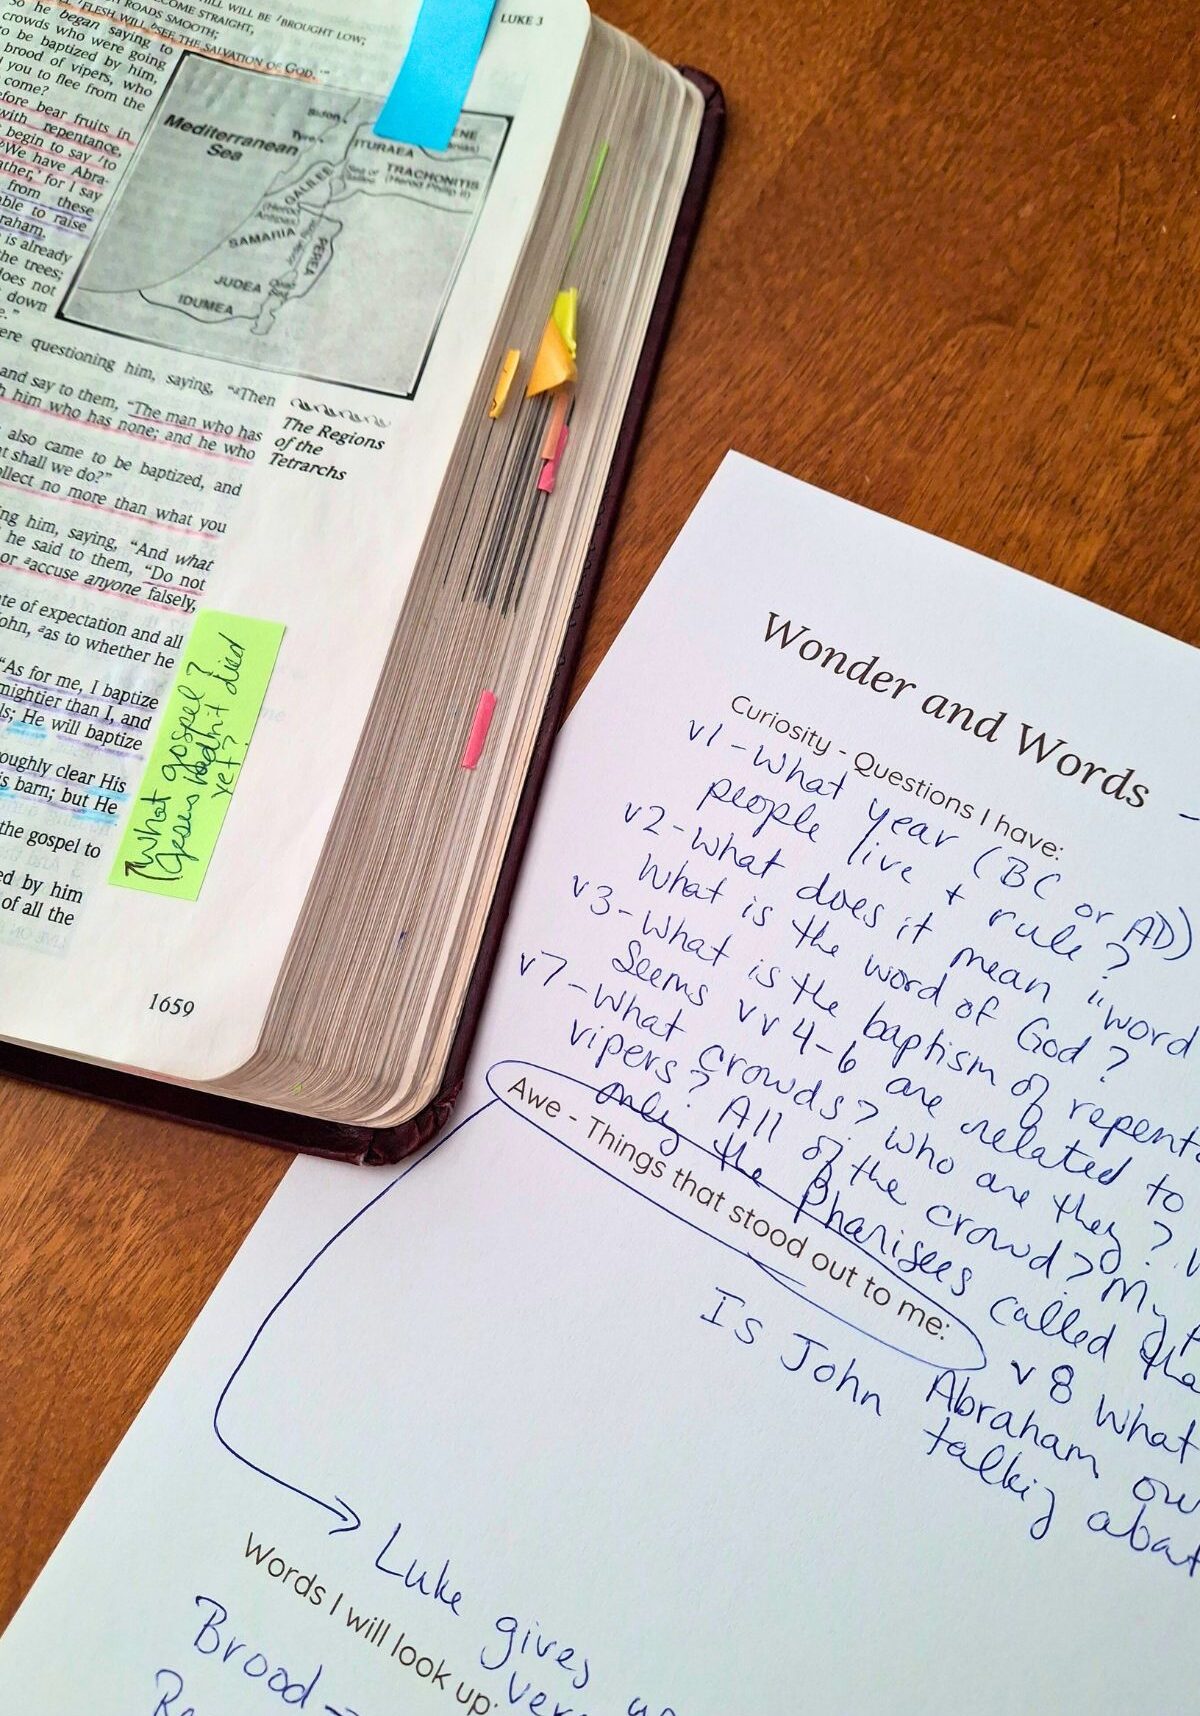 HILL WILL BE BROUGHT LOW;
COME STRAIGHT,
ROADS SMOOTH;
FLESH WILL SEE THE SALVATION OF GOD.'"
LUKE 3
So he began saying to
crowds who were going
to be baptized by him,
brood of vipers, who
you to flee from the
come?
fore bear fruits in
with repentance,
begin to say 'to
We have Abra-
ather,' for I say
from these
able to raise
raham.
is already
the trees;
does not
down
e."
Mediterranean
Sea
Sidon
Tyre
ITURAEA
TRACHONITIS
(Herod Philip II)
GALILEE
(Herod
Antipas)
SAMARIA
PEREA
JUDEA
IDUMEA
The Regions
of the
Tetrarchs
ere questioning him, saying, "Then
and say to them, "The man who has
h him who has none; and he who
also came to be baptized, and
at shall we do?"
ollect no more than what you
ing him, saying, "And what
he said to them, "Do not
or accuse anyone falsely,
ate of expectation and all
John, as to whether he
"As for me, I baptize
mightier than I, and
ls; He will baptize
oughly clear His
is barn; but He
the gospel to
ed by him
of all the
What gospel?
Jesus hadn't died
yet?
1659
Wonder and Words
Curiosity - Questions I have:
v1 - What year (BC or AD)
people live + rule?
v2 - What does it mean "word
What is the word of God?
v3 - What is the baptism of repent
Seems vv 4-6 are related to
v7 - What crowds? Who are they?
vipers? All of the crowd? My
only the Pharisees called tha
Awe - Things that stood out to me:
v8 What
Is John Abraham ow
talkig abat
Luke gives us
very
Words I will look up:
Brood -
Re